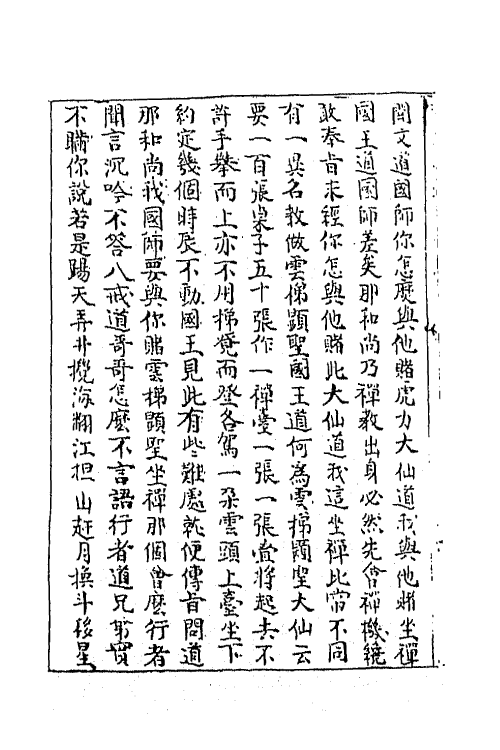 聞文道國師你怎麽與他賭虎力大仙道我與他賭坐禪
國王道國師差矣那和尚乃禪教出身必然先會禪機纔
敢奉旨求經你怎與他賭此大仙道我這坐禪比常不同
有一異名教做雲梯顯聖國王道何為雲梯顯聖大仙云
要一百張桌子五十張作一禪臺一張一張疊將起去不
許手攀而上亦不用梯凳而登各駕一朵雲頭上臺坐下
約定幾個時辰不動國王見此有些難處就便傳旨問道
那和尚我國師要與你賭雲梯顯聖坐禪那個會麽行者
聞言沉吟不答八戒道哥哥怎麽不言語行者道兄弟實
不瞞你說若是踢天弄井攪海翻江担山赶月換斗移星